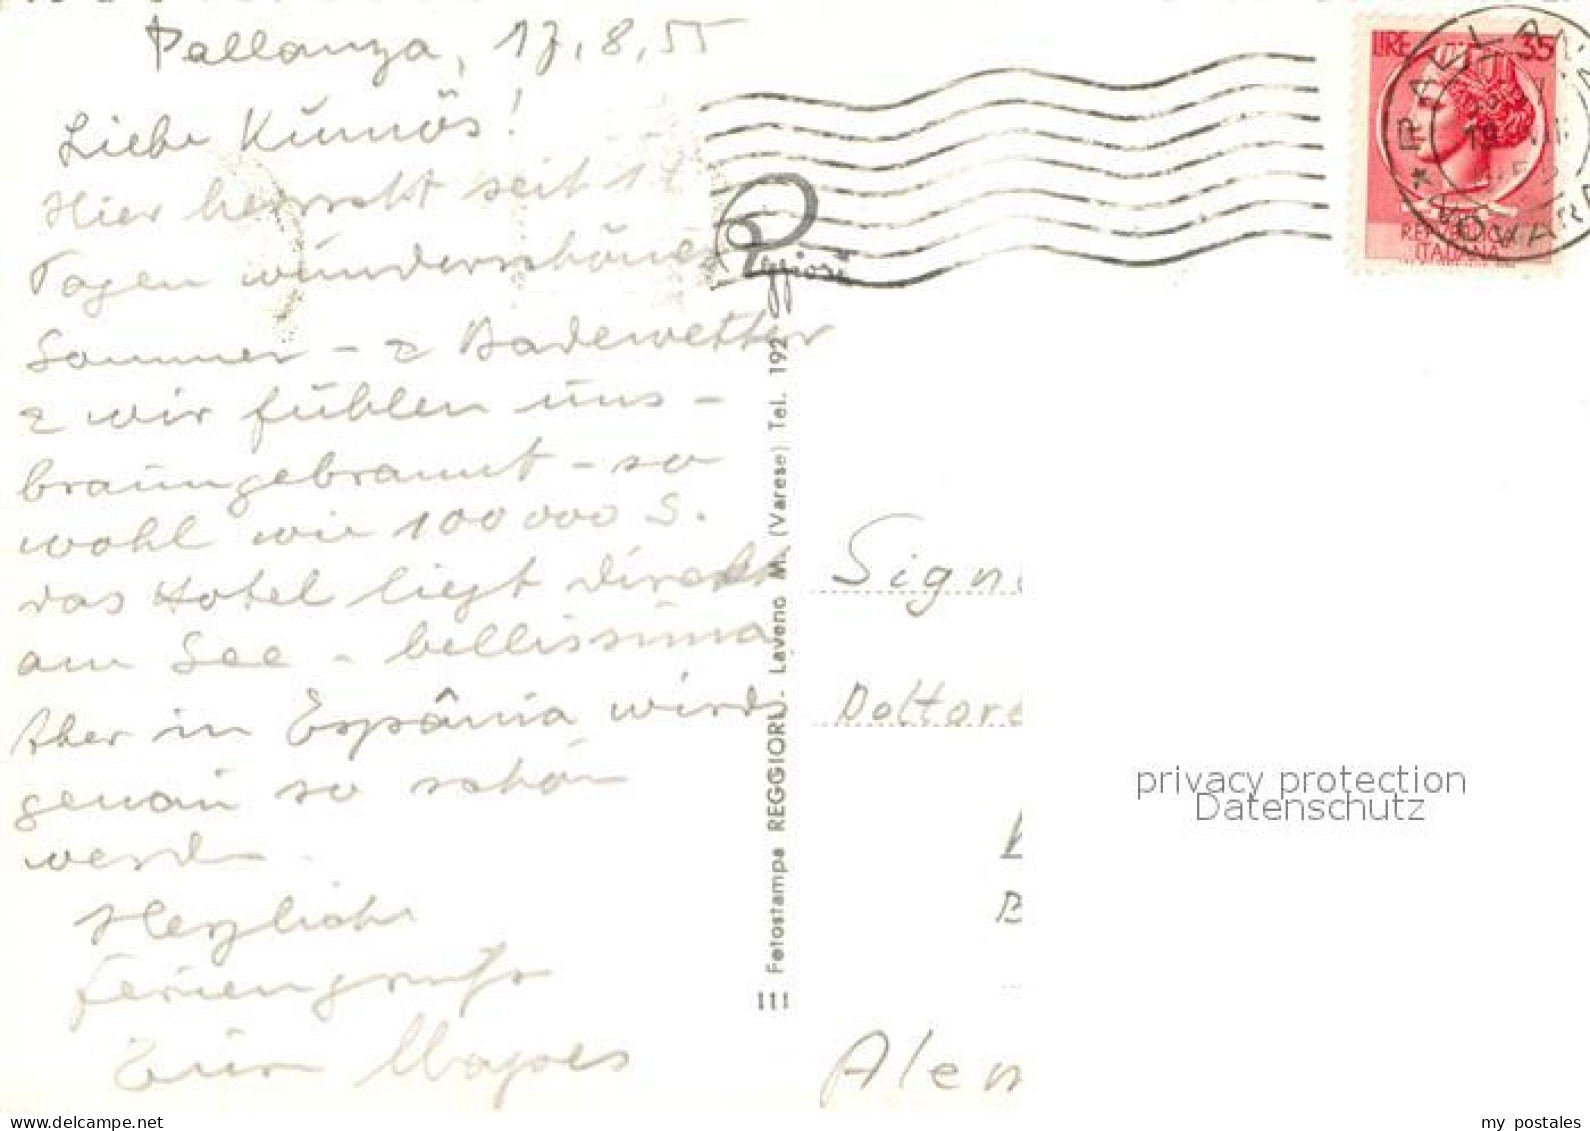 Pallanza, 17.8.55
Liebe Kümmös!
Hier herrscht seit 14
Tagen wunderschönes
Sommer - & Badewetter
& wir fühlen uns -
braungebrannt - so
wohl wie 100 000 S.
das Hotel liegt direkt
am See - bellissima
Aber in Espânia wirds
genau so schön
werden.
Herzliche
Feriengrüße
Eure
Reggiori
111 Fotostampa REGGIORI. Laveno M. (Varese) Tel. 192
LIRE 35
REPUBBLICA
ITALIANA
PALLANZA
* NOVARA
Sign
Dottore
Alem
privacy protection
Datenschutz
my postales